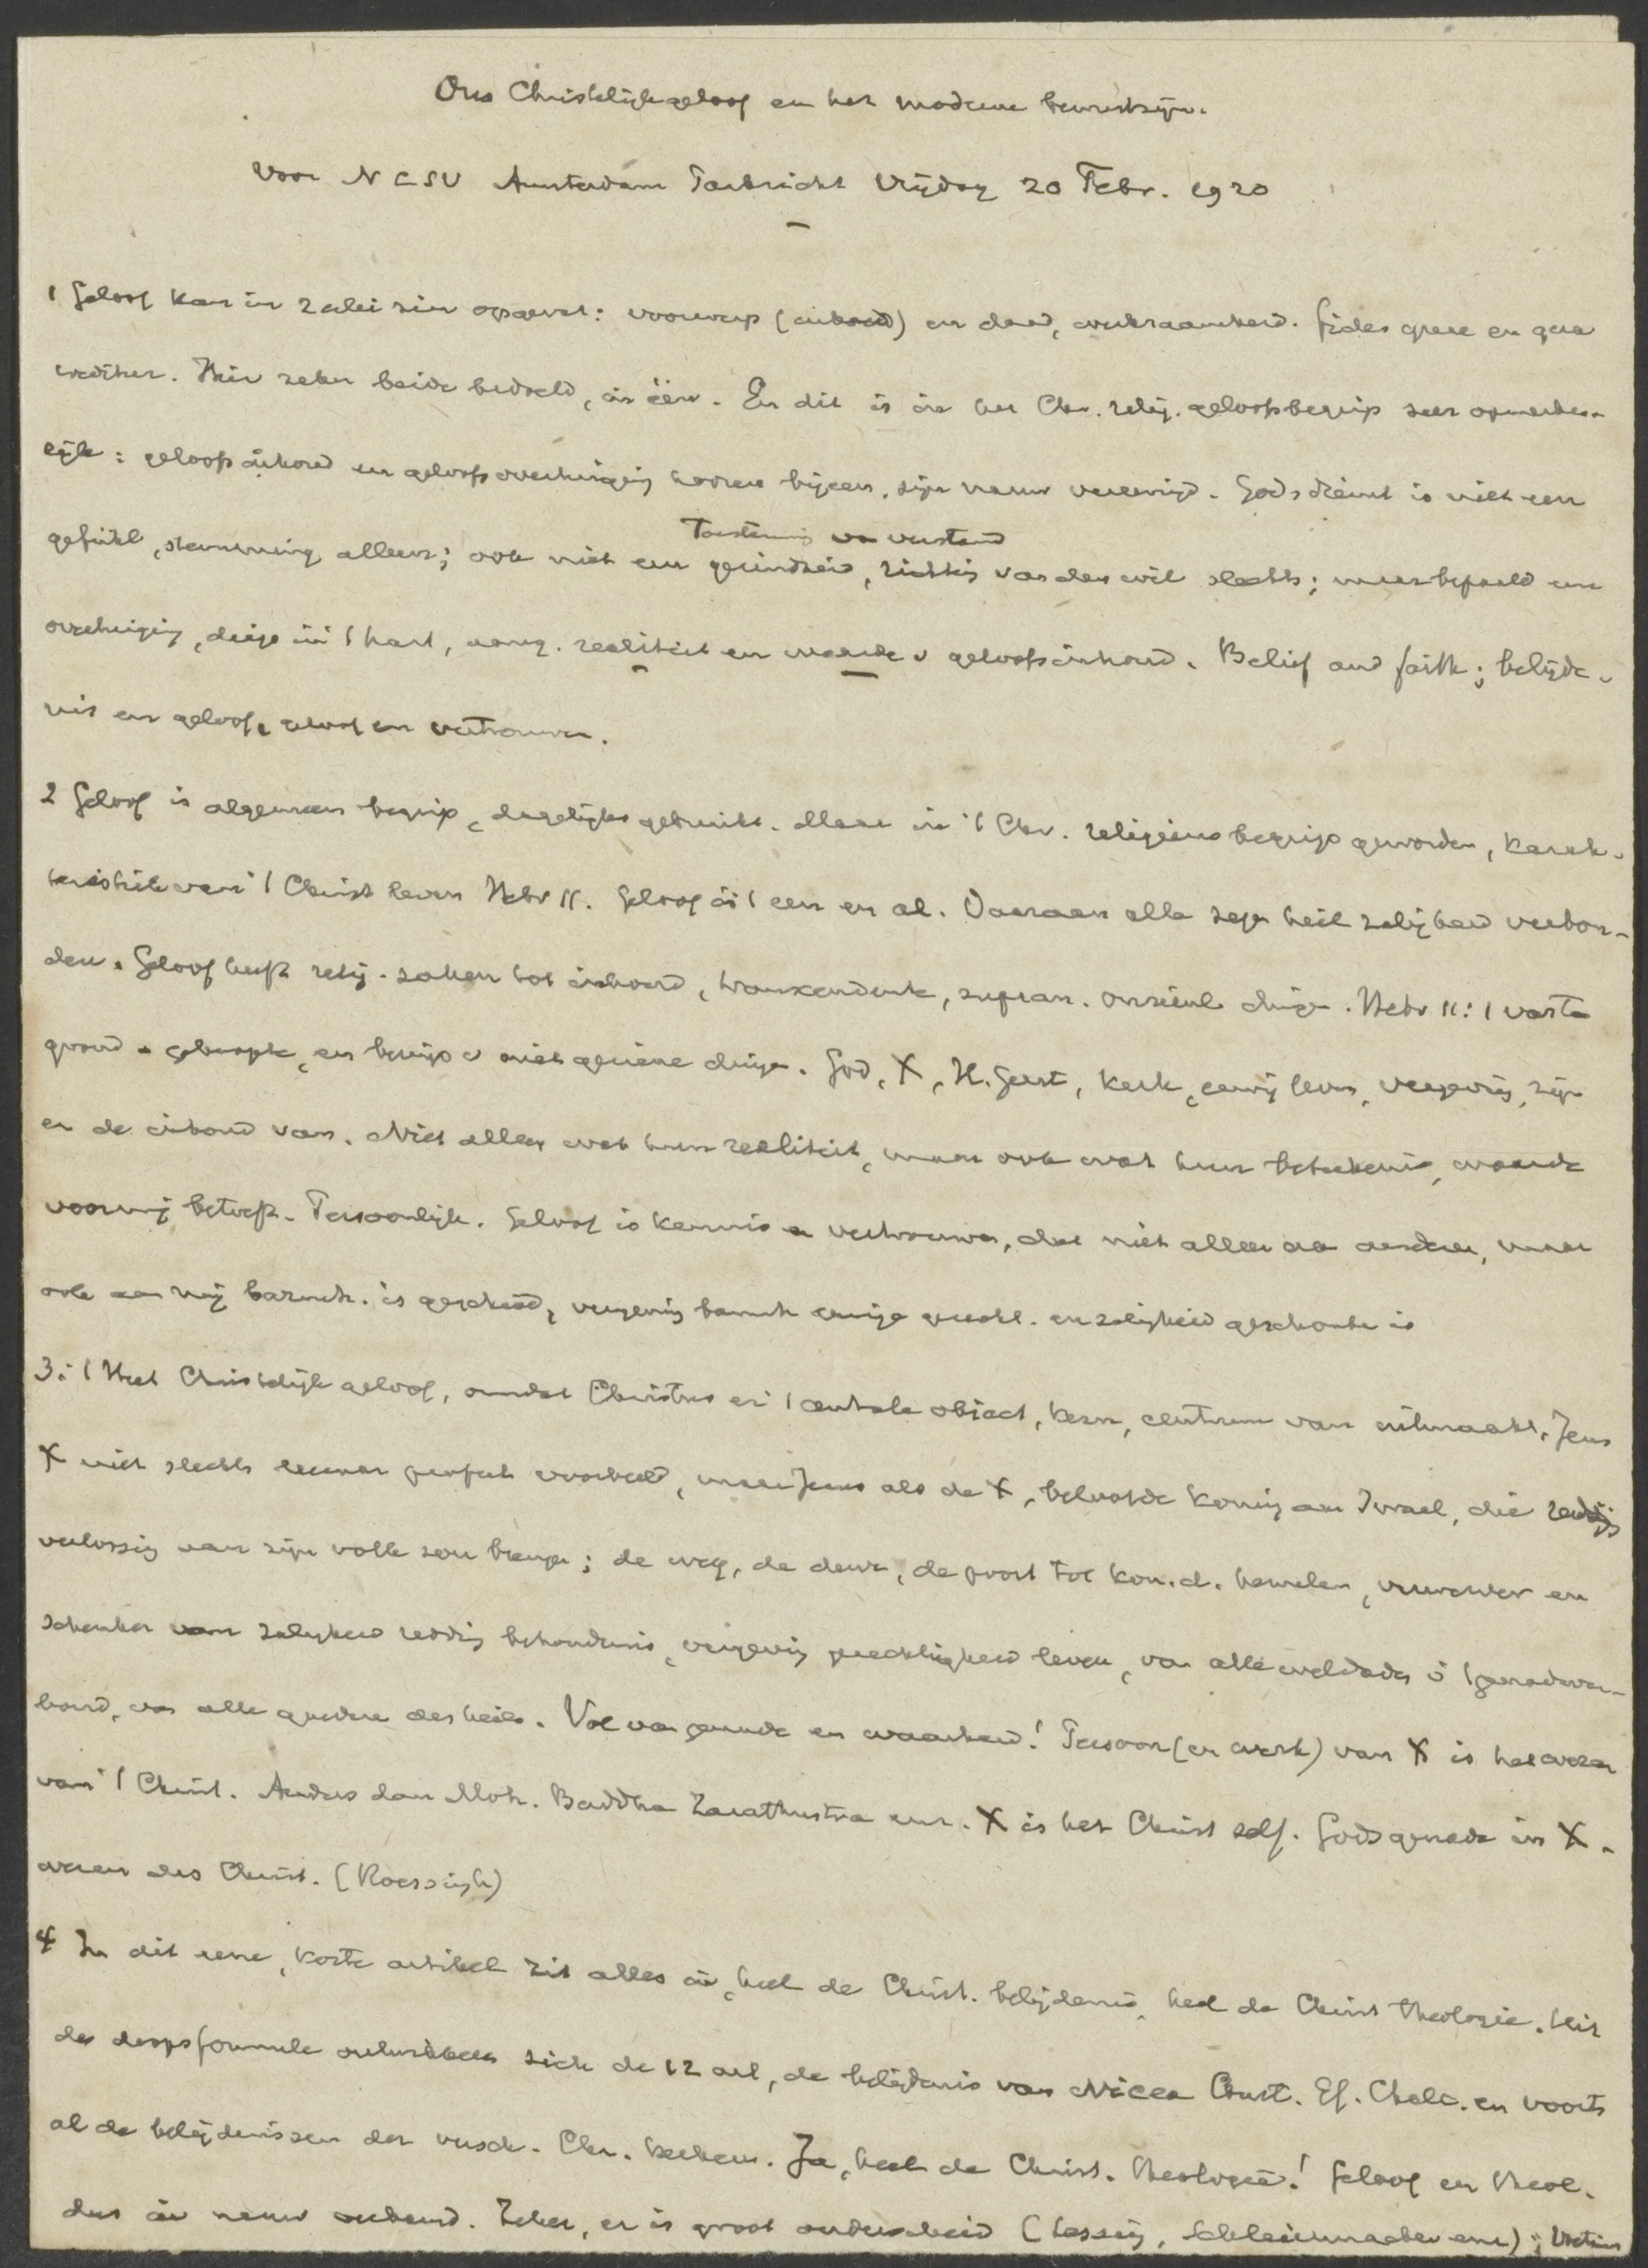 Ons Christelijk geloof en het moderne bewustzijn.
Voor NCSV Amsterdam Vrijdag 20 Febr. 1920
1 Geloof kan in 2erlei zin opgevat: voorwerp (inhoud) en daad, werkzaamheid. fides quae en qua
creditur. Hier zeker beide bedoeld, in één. En dit is in het Chr. relig. geloofsbegrip zeer opmerke-
lijk: geloofsinhoud en geloofsovertuiging hooren bijeen, zijn nauw vereenigd. Godsdienst is niet een
Toestemming van verstand
gefühl, stemming alleen; ook niet een gezindheid, richting van den wil slechts; maar bepaald een
overtuiging, diep in 't hart, aang. realiteit en waarde v geloofsinhoud. Belief and faith; belijde-
nis en geloof, geloof en vertrouwen.
2 Geloof is algemeen begrip, dagelijks gebruikt. Maar in 't Chr. religieus begrip geworden, karak-
teristiek van 't Christ leven Hebr 11. Geloof is 't een en al. Daaraan alle zegen heil zaligheid verbon-
den. Geloof heeft relig. zaken tot inhoud, transcendente, supran. onzienl. dingen. Hebr 11:1 vaste
grond v gehoopte, en bewijs v niet geziene dingen. God, X, H. Geest, kerk, eeuwig leven, vergeving, zijn
er de inhoud van. Niet alleen wat hun realiteit, maar ook wat hun beteekenis, waarde
voor mij betreft. Persoonlijk. Geloof is kennis en vertrouwen, dat niet alleen aan anderen, maar
ook aan mij barmh. is geschied, vergeving eeuwige gerecht. en zaligheid geschonken is
3: 1 Het Christelijk geloof, omdat Christus er 't centrale object, kern, centrum van uitmaakt. Jezus
X niet slechts leeraar profeet voorbeeld, maar Jezus als de X, beloofde koning aan Israel, die redding
verlossing aan zijn volk zou brengen; de weg, de deur, de poort tot kon. d. hemelen, verwerver en
schenker van zaligheid redding behoudenis, vergeving gerechtigheid leven, van alle weldaden v 't genadever-
bond, van alle goederen des heils. Vol van genade en waarheid! Persoon (en werk) van X is het wezen
van 't Christ. Anders dan Moh. Buddha Zarathustra enz. X is het Christ zelf. Gods genade in X.
wezen des Christ. (Roessingh)
4 In dit eene, korte artikel zit alles in, heel de Christ. belijdenis, heel de Christ theologie. Uit
de doopsformule ontwikkelen zich de 12 art, de belijdenis van Nicea Const. Ef. Chalc. en voorts
al de belijdenissen der versch. Chr. kerken. Ja, heel de Christ. theologie! Geloof en theol.
dus in nauw verband. Zeker, er is groot onderscheid (Lessing, Schleiermacher enz);